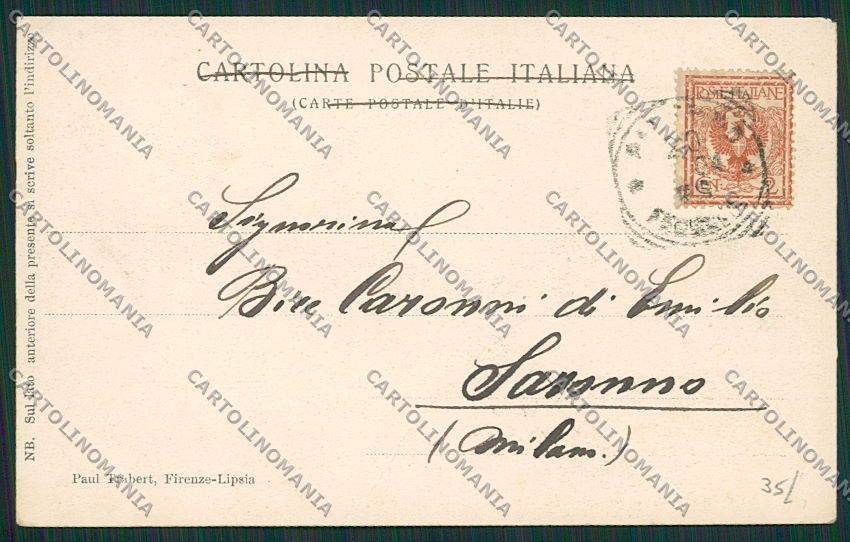 CARTOLINA POSTALE ITALIANA
(CARTE POSTALE D'ITALIE)
POSTE ITALIANE
CENT. 2
Signorina
Bice Caronni di Emilio
Saronno
(Milano.)
NB. Sul lato anteriore della presente si scrive soltanto l'indirizzo
Paul Trabert, Firenze-Lipsia
35/
CARTOLINOMANIA